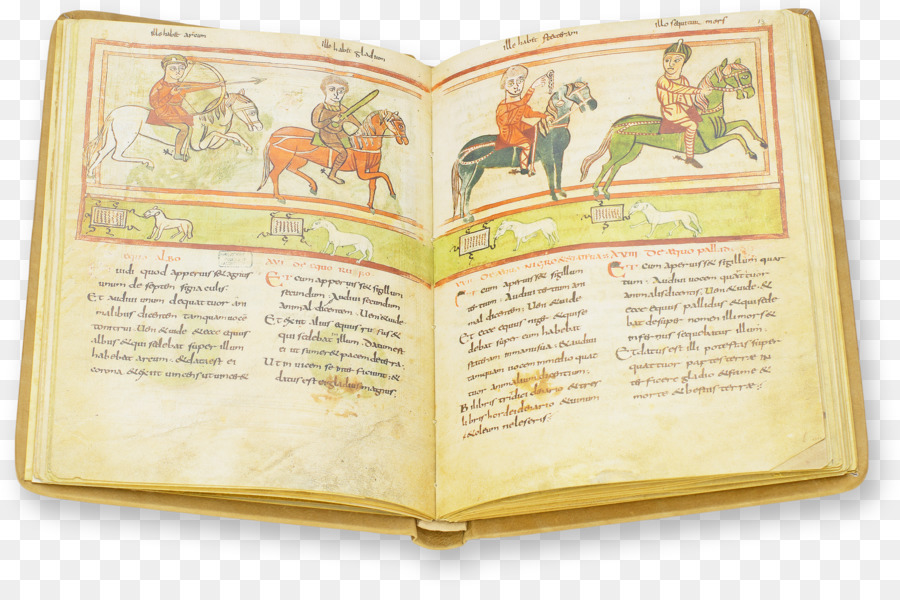 ille habet arcum
ille habet gladium
ille habet stateram
illo sequitur mors
EQUO ALBO
uidi quod apperuisset agnus
unum de septem sigillis.
Et audiui unum de quattuor ani
malibus dicentem tamquam uocē
tonitrui. Ueni & uide & ecce equus
albus & qui sedebat super illum
habebat arcum. & data est ei
corona. & exiuit uincens ut uinceret
XVI DE EQUO RUFO
Et cum apperuisset sigillum
secundum. Audiui secundum
animal dicens. Ueni & uide
Et exiit alius equus rufus &
qui sedebat illum. Datum est
ei ut sumeret pacem de terra.
Ut inuicem se interficiunt. &
datus est ei gladius magnus.
XVII DE EQUO NIGRO & STATERA
Et cum aperuisset sigillum
tertium. Audiui tertium an
Et ecce equus niger. & qui se
debat super eum habebat
stateram in manu sua. & audiui
tamquam uocem in medio quat
tuor animalium dicentium.
Bilibris tritici denario & tres
libris hordei denario & uinum
& oleum ne leseris.
XVIII DE AEQUO PALLIDO
Et cum aperuisset sigillum quar
tum. Audiui uocem quattuor
animalis dicentis. Ueni & uide. &
ecce equus pallidus & qui sede
bat desuper nomen illi mors &
infernus sequebatur illum.
Et datus est illi potestas super
quattuor partes terrae in
terficere gladio & fame &
morte & bestiis terrae.